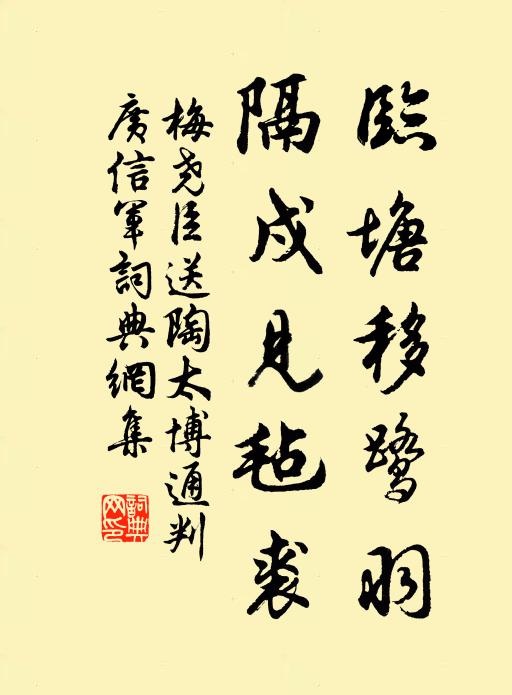 臨塘移鷺羽
隔戍見毡裘
梅尧臣送陶太博通判
廣信軍詞典網集
詞典
网印